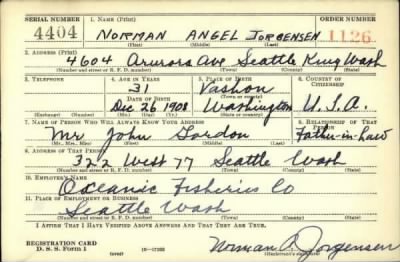 SERIAL NUMBER 1. NAME (Print) ORDER NUMBER
4404 NORMAN ANGEL JORGENSEN 1126
(First) (Middle) (Last)
2. ADDRESS (Print)
4604 Arurora Ave Seattle King Wash
(Number and street or R. F. D. number) (Town) (County) (State)
3. TELEPHONE 4. AGE IN YEARS 5. PLACE OF BIRTH 6. COUNTRY OF CITIZENSHIP
31 Vashon
DATE OF BIRTH (Town or county)
Dec 26 1908 Washington U.S.A.
(Exchange) (Number) (Mo.) (Day) (Yr.) (State or country)
7. NAME OF PERSON WHO WILL ALWAYS KNOW YOUR ADDRESS 8. RELATIONSHIP OF THAT PERSON
Mr John Gordon Father-in-law
(Mr., Mrs., Miss) (First) (Middle) (Last)
9. ADDRESS OF THAT PERSON
322 West 77 Seattle Wash
(Number and street or R. F. D. number) (Town) (County) (State)
10. EMPLOYER'S NAME
Oceanic Fisheries Co
11. PLACE OF EMPLOYMENT OR BUSINESS
Seattle Wash
(Number and street or R. F. D. number) (Town) (County) (State)
I AFFIRM THAT I HAVE VERIFIED ABOVE ANSWERS AND THAT THEY ARE TRUE.
REGISTRATION CARD
D. S. S. Form 1 (over) Norman A. Jorgensen
(Registrant's signature)